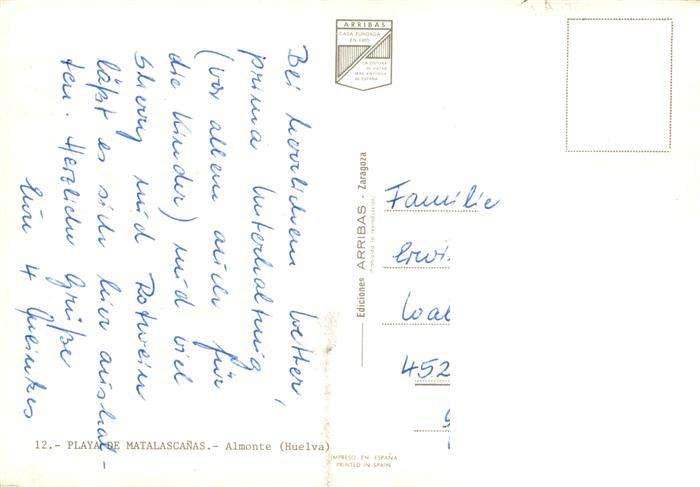 Bei herrlichem Wetter,
prima Unterhaltung
(vor allem auch für
die Kinder) und viel
Sherry und Rotwein
läßt es sich hier aushal-
ten. Herzliche Grüße
Eure 4
ARRIBAS
CASA FUNDADA
EN 1905
LA EDITORA
DE POSTALES
MAS ANTIGUA
DE ESPAÑA
Ediciones ARRIBAS - Zaragoza
Prohibida la reproducción
Familie
Erwi
Wal
452
12.- PLAYA DE MATALASCAÑAS.- Almonte (Huelva)
IMPRESO EN ESPAÑA
PRINTED IN SPAIN